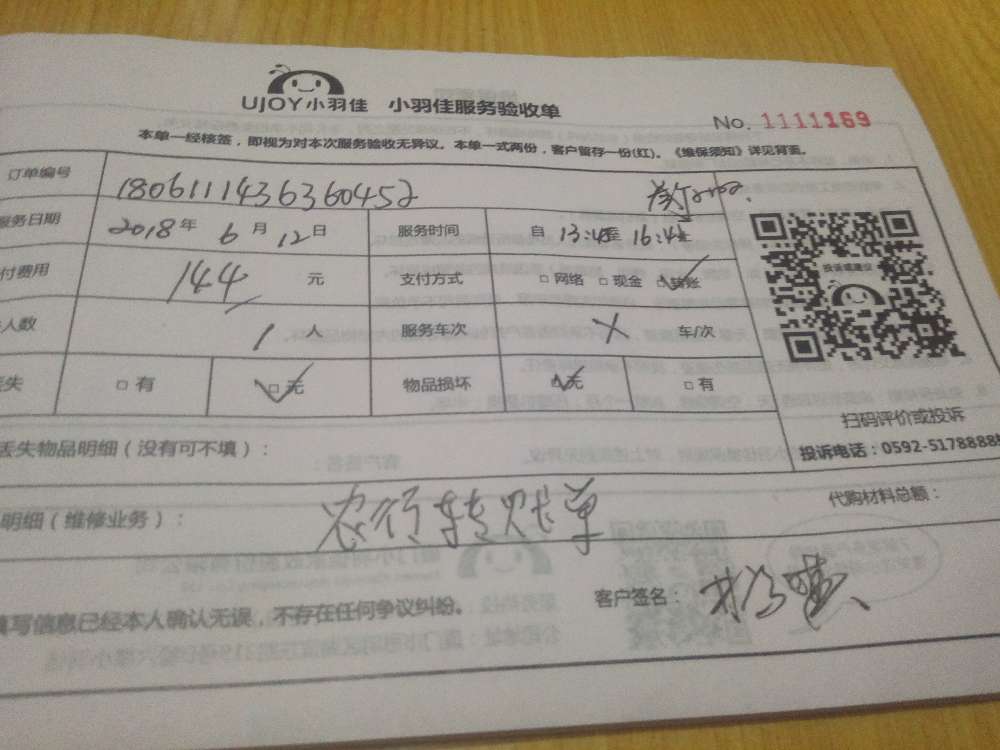 UJOY小羽佳 小羽佳服务验收单
No. 1111169
本单一经核签，即视为对本次服务验收无异议。本单一式两份，客户留存一份(红)。《维保须知》详见背面。
订单编号 180611143636045
服务日期 2018年 6月 12日 服务时间 自 13:4 至 16:4
付费用 144 元 支付方式 □网络 □现金 □转账
人数 1 人 服务车次 车/次
丢失 □有 □无 物品损坏 □无 □有
投诉或建议
扫码评价或投诉
投诉电话：0592-5178888
丢失物品明细（没有可不填）：
明细（维修业务）： 农行转账单 代购材料总额：
填写信息已经本人确认无误，不存在任何争议纠纷。 客户签名：